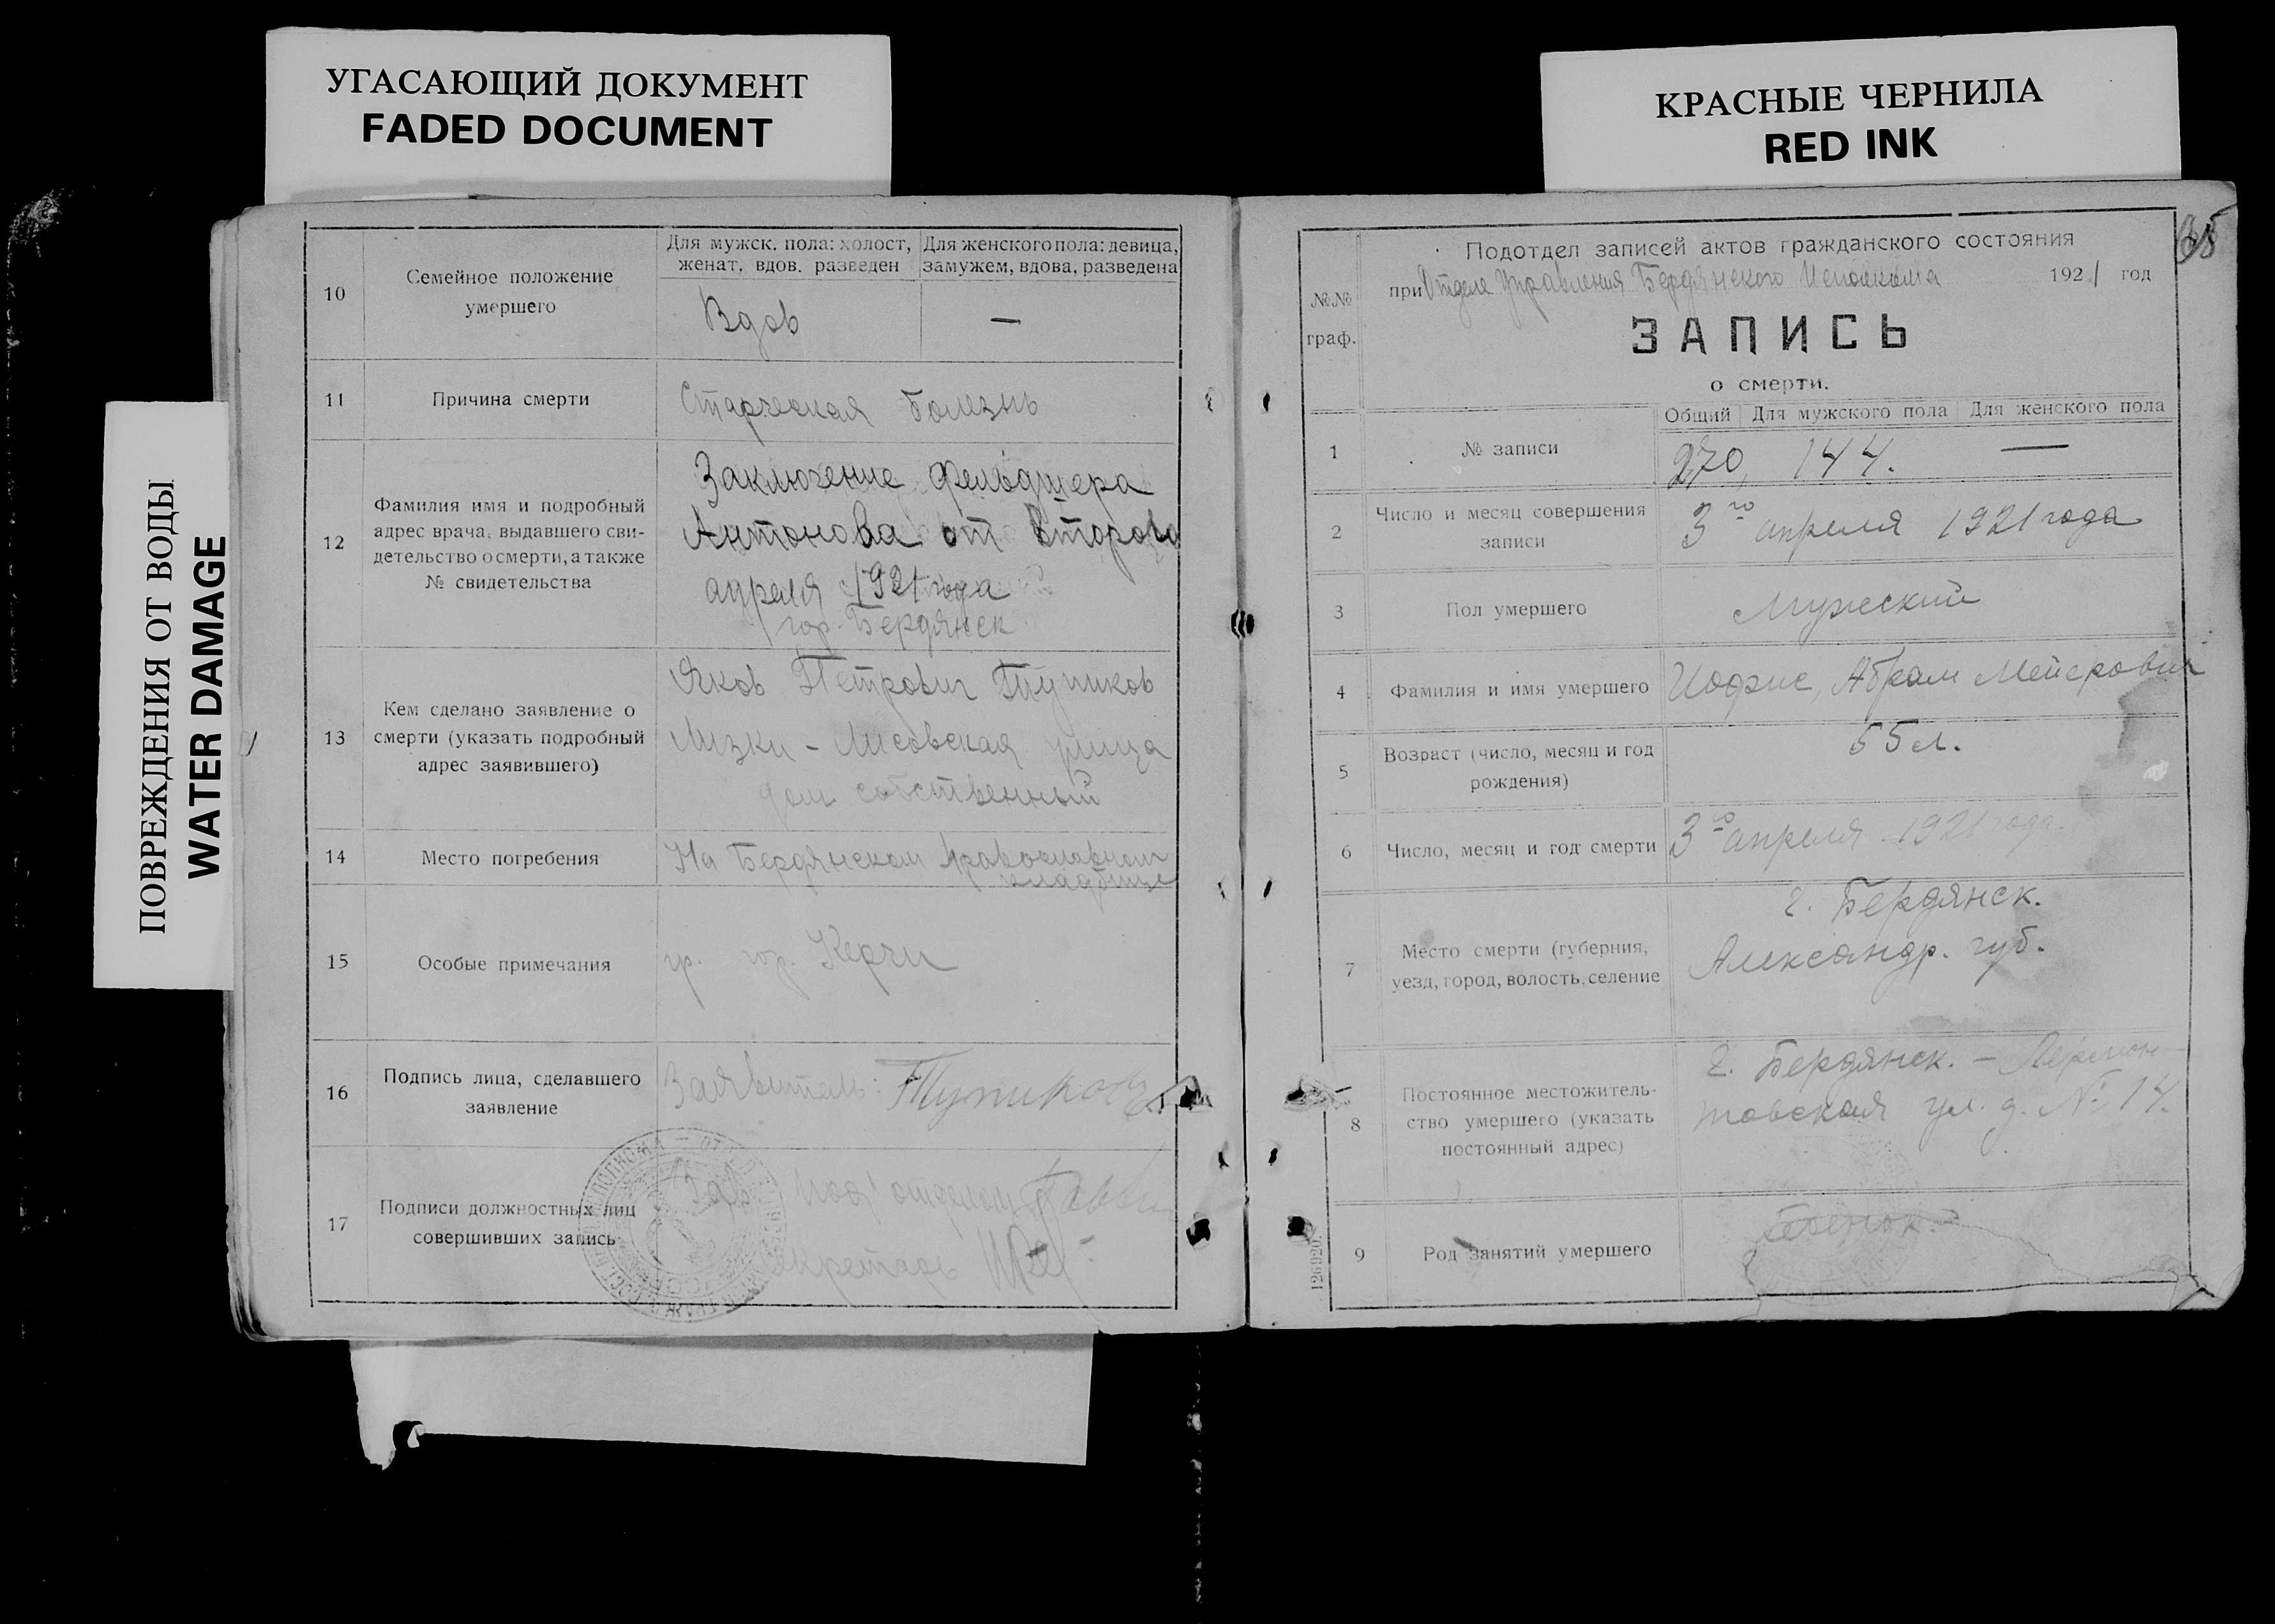 УГАСАЮЩИЙ ДОКУМЕНТ
FADED DOCUMENT
КРАСНЫЕ ЧЕРНИЛА
RED INK
ПОВРЕЖДЕНИЯ ОТ ВОДЫ
WATER DAMAGE
10
Семейное положение
умершего
Для мужск. пола: холост,
женат, вдов. разведен
Для женского пола: девица,
замужем, вдова, разведена
Вдов
—
11
Причина смерти
Старческая болезнь
12
Фамилия имя и подробный
адрес врача, выдавшего сви-
детельство о смерти, а также
№ свидетельства
Заключение фельдшера
Антонова от второго
апреля 1921 года
гор. Бердянск
13
Кем сделано заявление о
смерти (указать подробный
адрес заявившего)
Яков Петрович Тупиков
Лизки - Лисовская улица
дом собственный
14
Место погребения
На Бердянском православном
кладбище
15
Особые примечания
гр. гор. Керчи
16
Подпись лица, сделавшего
заявление
Заявитель: Тупиков
17
Подписи должностных лиц
совершивших запись
Зав. Подотделом
Секретарь
35
№№
граф.
Подотдел записей актов гражданского состояния
при Отделе Управления Бердянского Исполкома 1921 год
ЗАПИСЬ
о смерти.
Общий Для мужского пола Для женского пола
1
№ записи
270, 144. —
2
Число и месяц совершения
записи
3го апреля 1921 года
3
Пол умершего
Мужеский
4
Фамилия и имя умершего
Иофис, Абрам Мейерович
5
Возраст (число, месяц и год
рождения)
55 л.
6
Число, месяц и год смерти
3го апреля 1921 года.
7
Место смерти (губерния,
уезд, город, волость, селение
г. Бердянск.
Александр. губ.
8
Постоянное местожитель-
ство умершего (указать
постоянный адрес)
г. Бердянск. - Лермон-
товская ул. д. № 14.
9
Род занятий умершего
126920